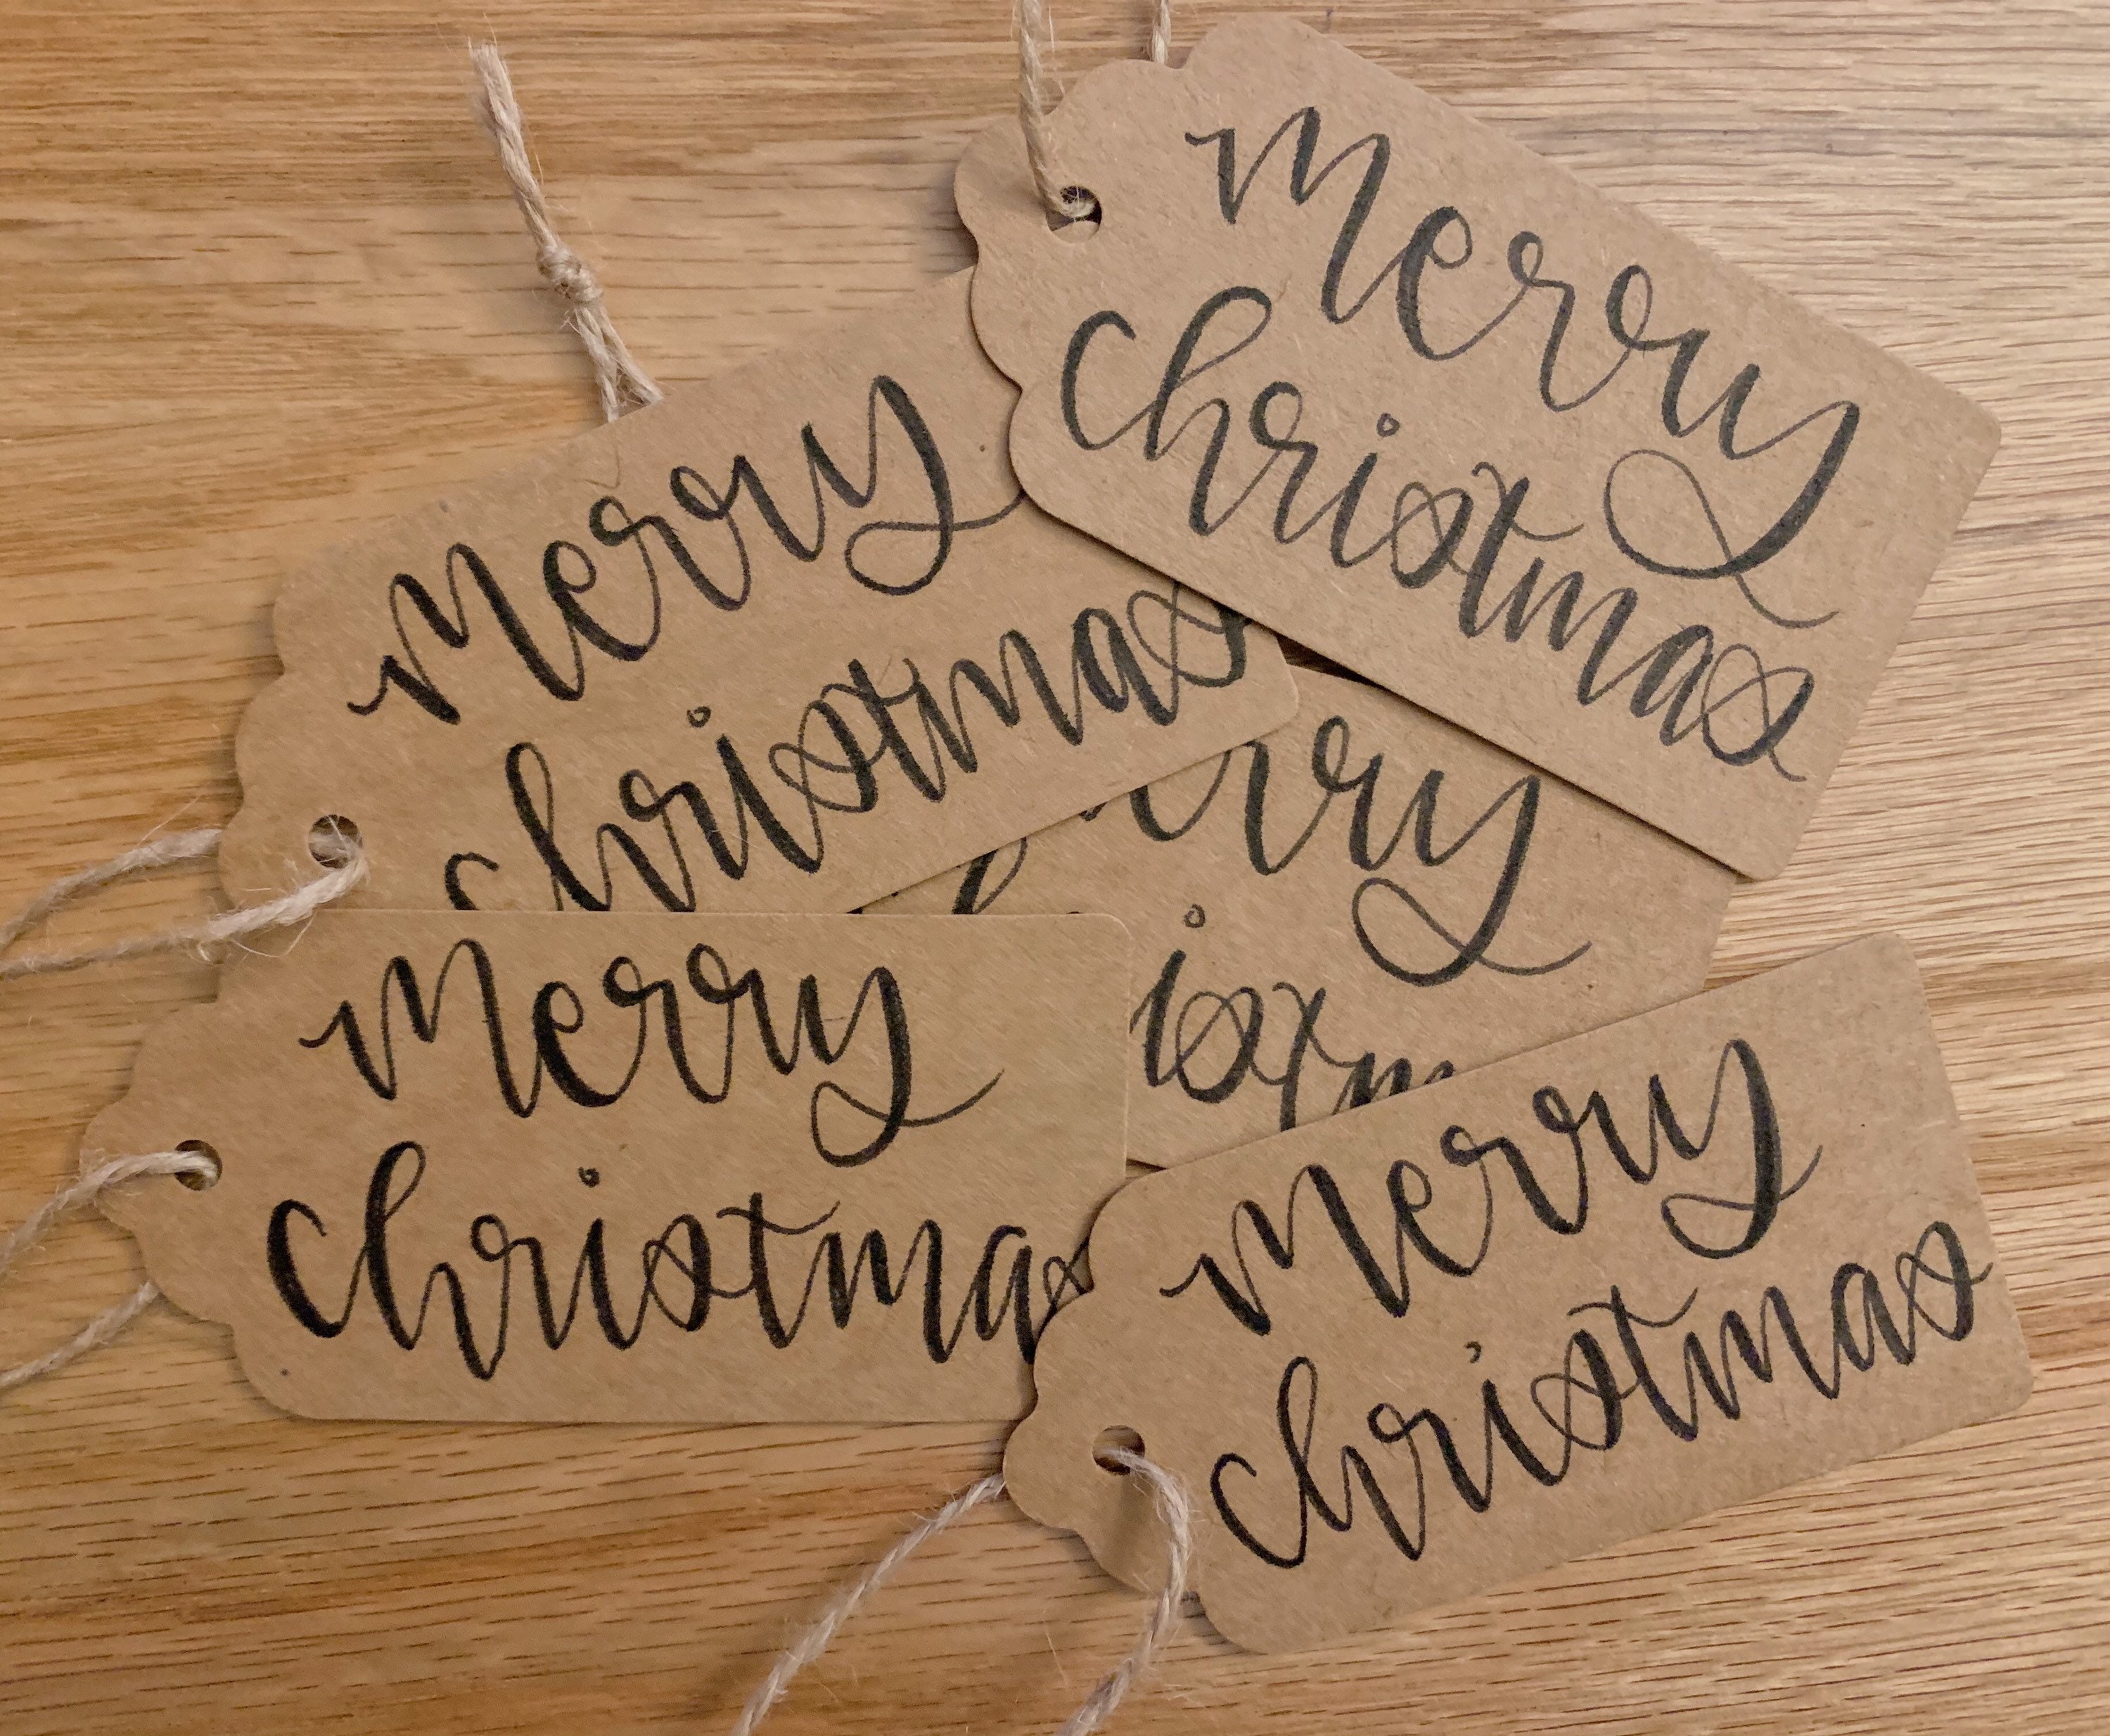 merry
christmas
merry
christmas
rry
istm
merry
christmas
merry
christmas